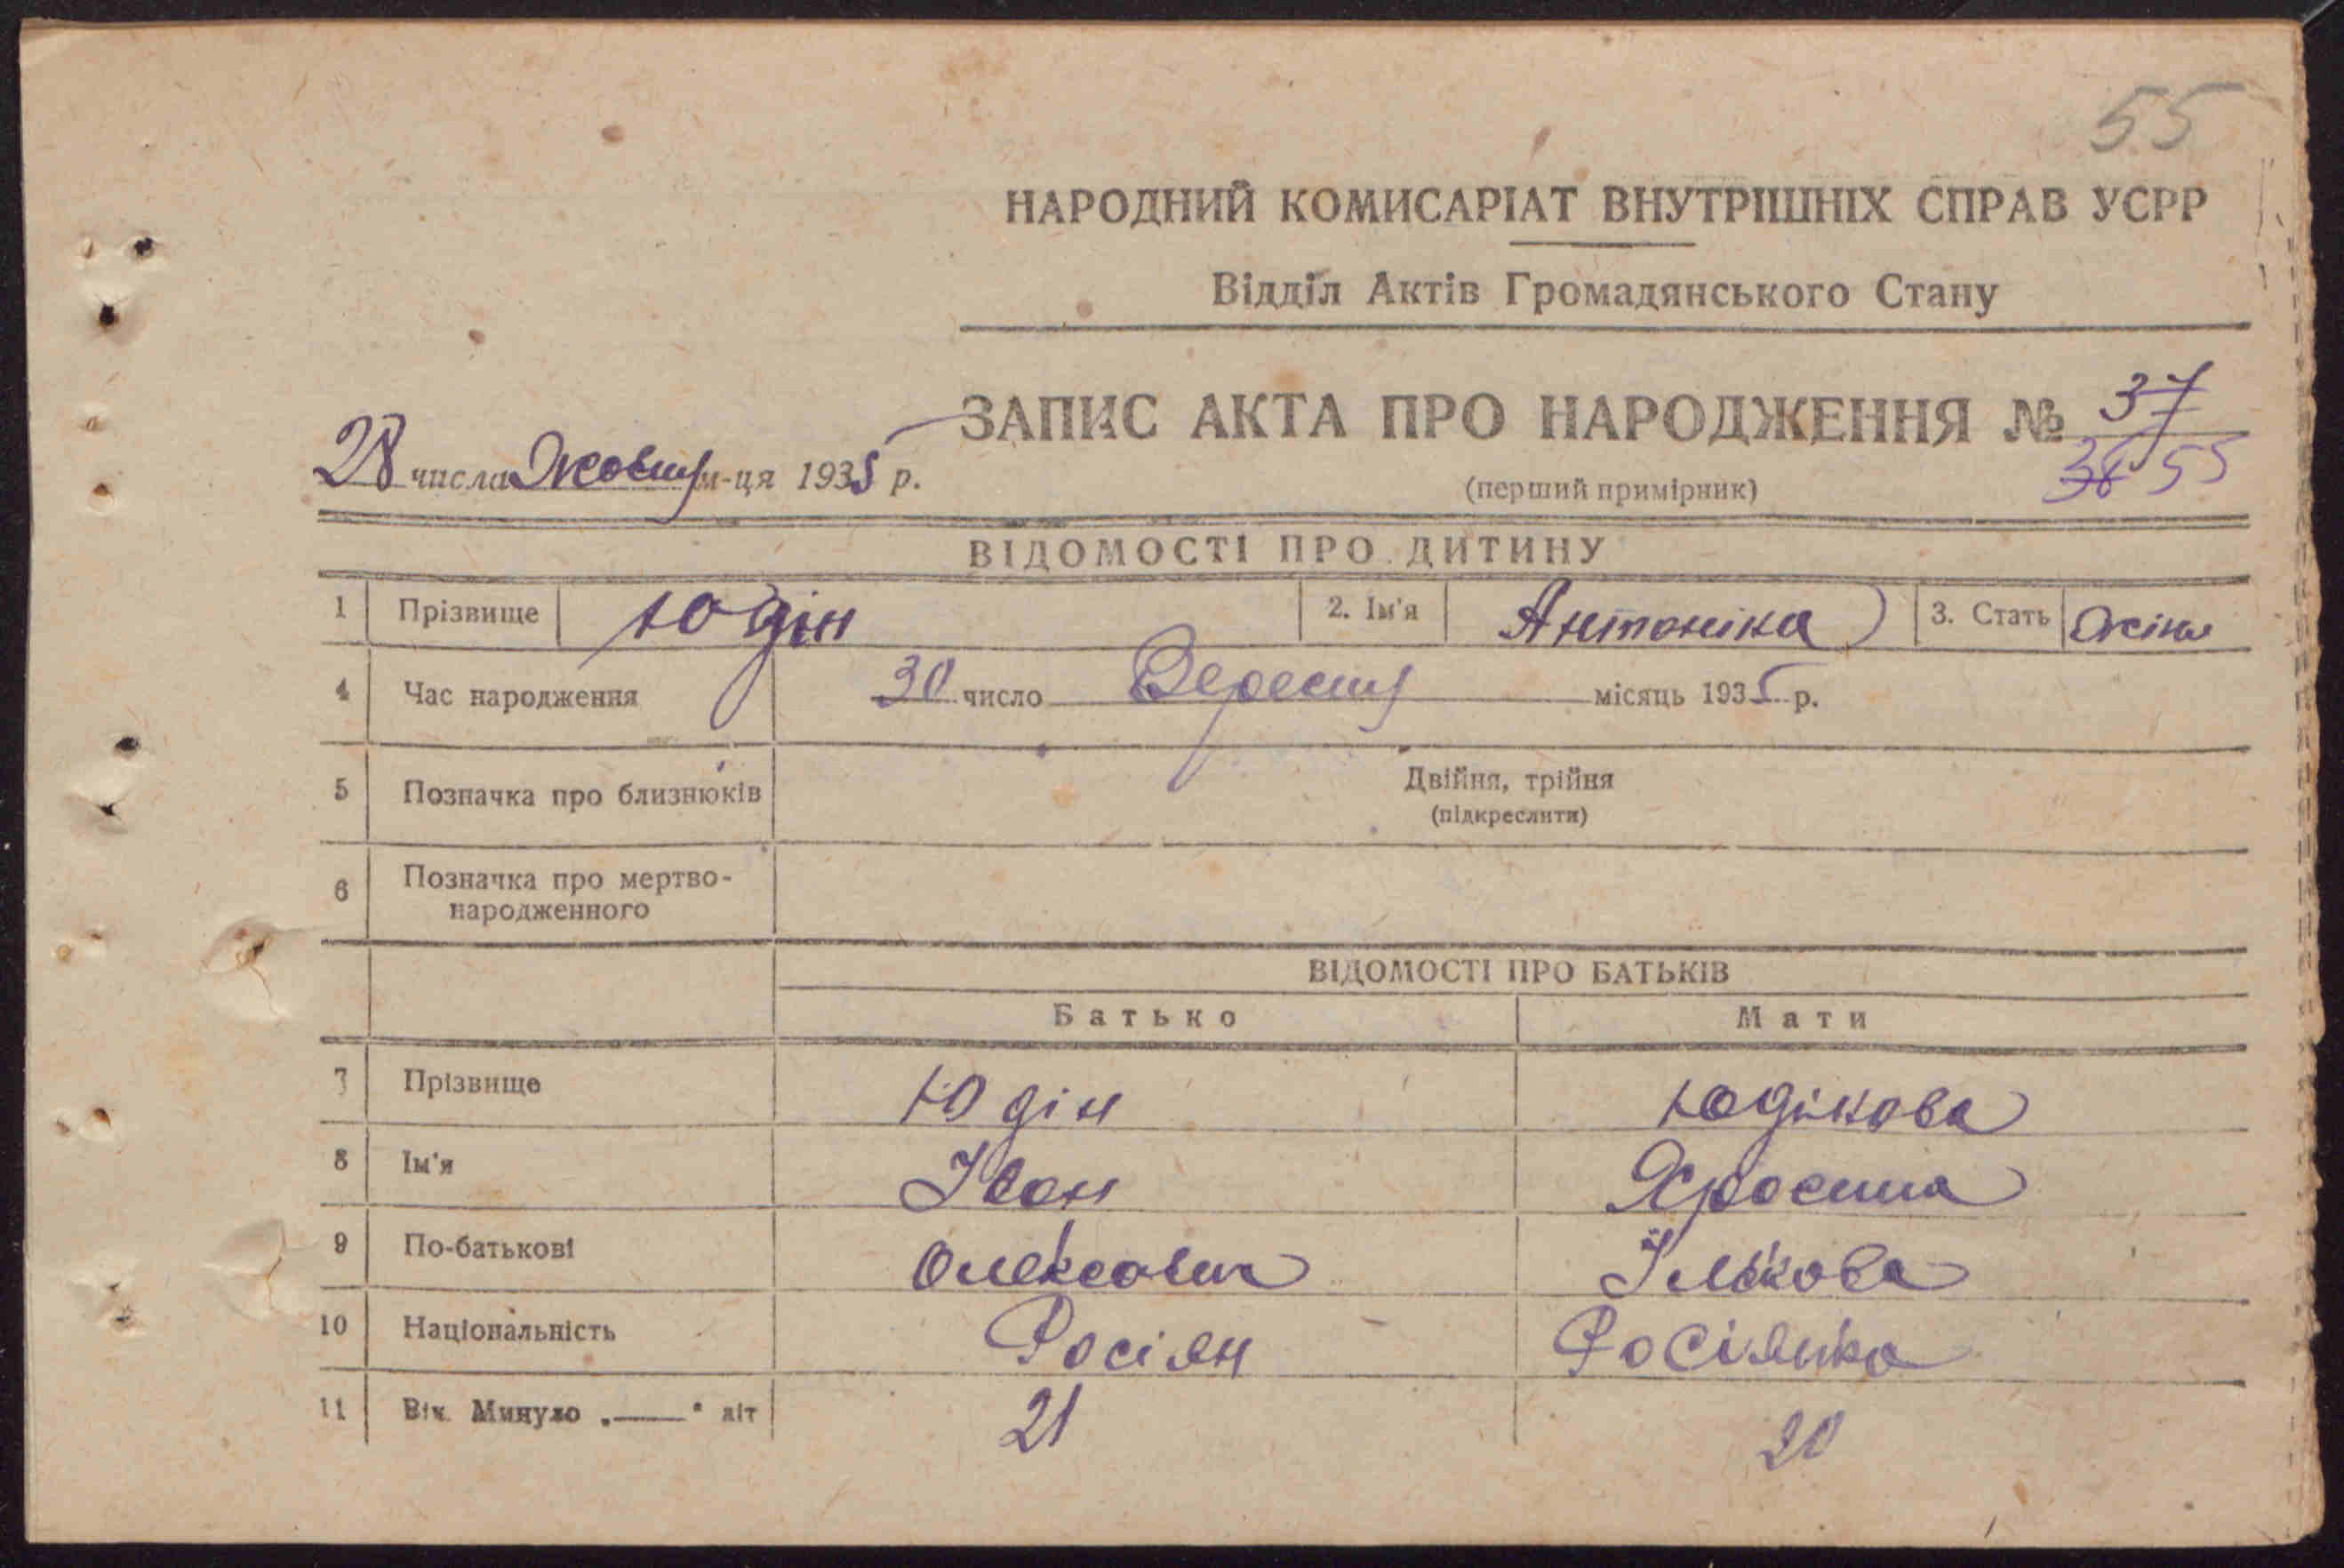 55
НАРОДНИЙ КОМИСАРІАТ ВНУТРІШНІХ СПРАВ УСРР
Відділ Актів Громадянського Стану
ЗАПИС АКТА ПРО НАРОДЖЕННЯ № 37
28 числа Жовт м-ця 1935 р.
(перший примірник)
38 55
ВІДОМОСТІ ПРО ДИТИНУ
1 Прізвище Юдін 2. Ім'я Антоніна 3. Стать Жіноч
4 Час народження 30 число Вересня місяць 1935 р.
5 Позначка про близнюків Двійня, трійня
(підкреслити)
6 Позначка про мертво-
народженного
ВІДОМОСТІ ПРО БАТЬКІВ
Батько Мати
7 Прізвище Юдін Юдінова
8 Ім'я Іван
9 По-батькові Олексович Ількова
10 Національність Росіян Росіянка
11 Вік. Минуло „—" літ 21 20